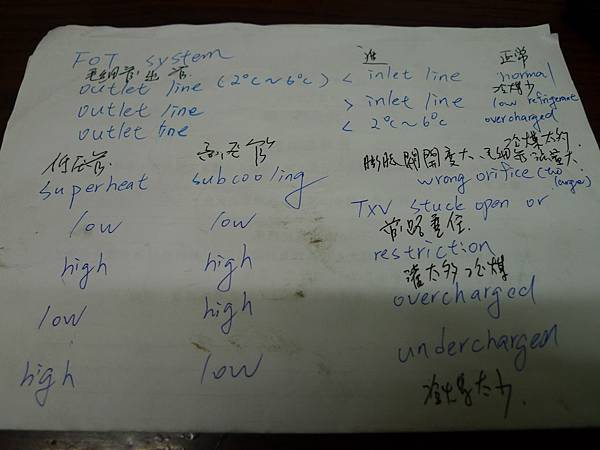 FOT system 進 正常
毛細管 出管
outlet line (2°c~6°c) < inlet line normal
冷煤少
outlet line > inlet line low refrigerant
outlet line < 2°c~6°c overcharged
冷煤太多
低压管 高压管 膨脹閥開度太大、毛細管流量太大
superheat subcooling wrong orifice (too large)
TXV stuck open or
low low
前路塞住
high high restriction
灌太多冷煤
low high overcharged
high low undercharged
冷煤太少